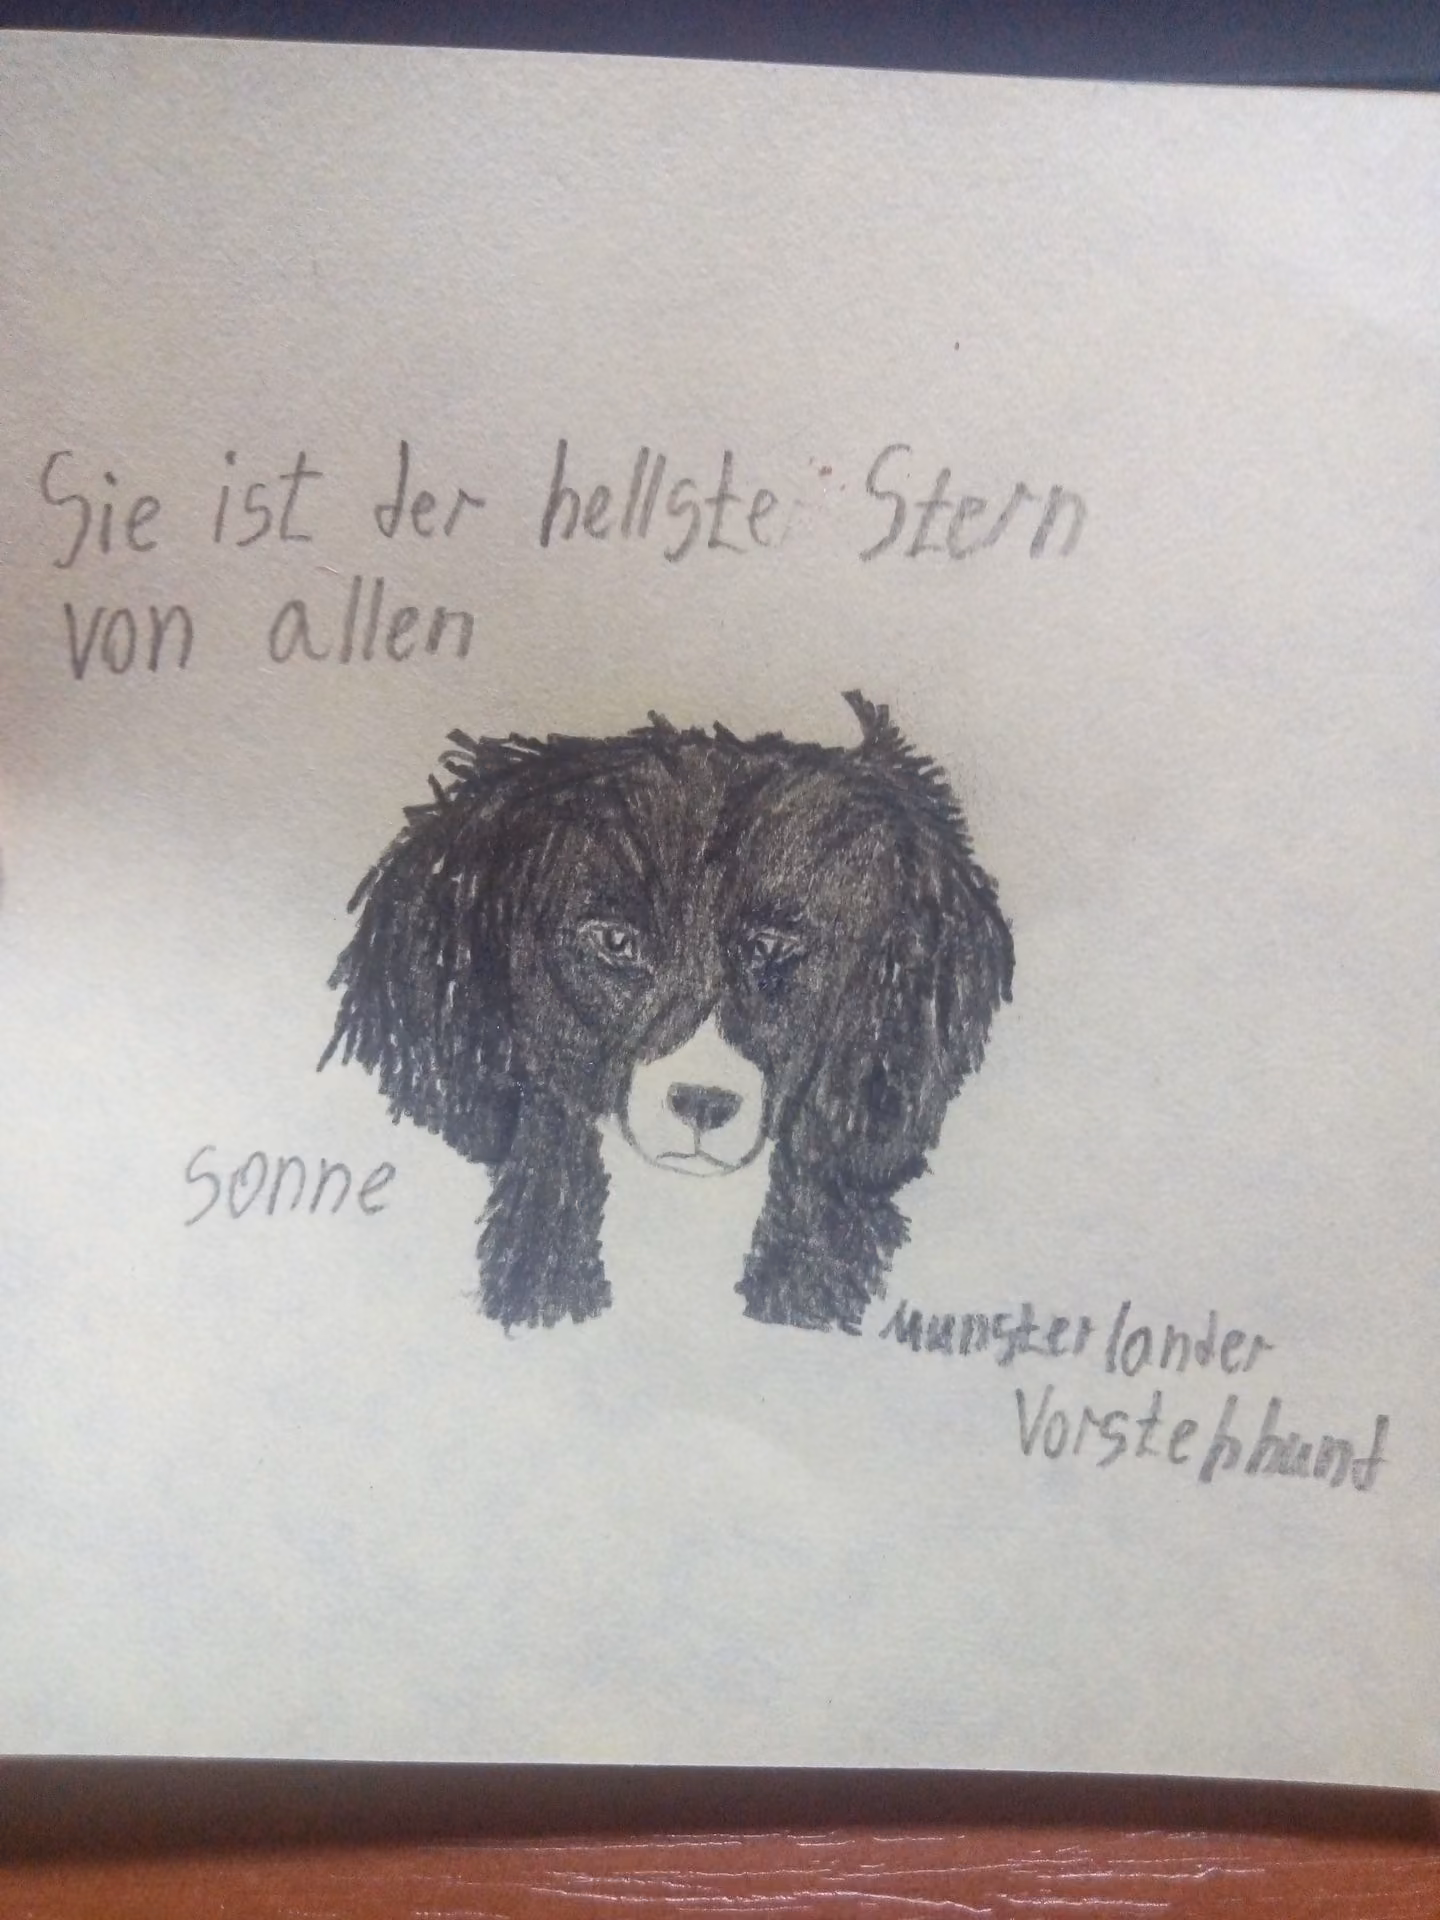 Sie ist der hellste Stern
von allen
Sonne
Munsterlander
Vorstehhund